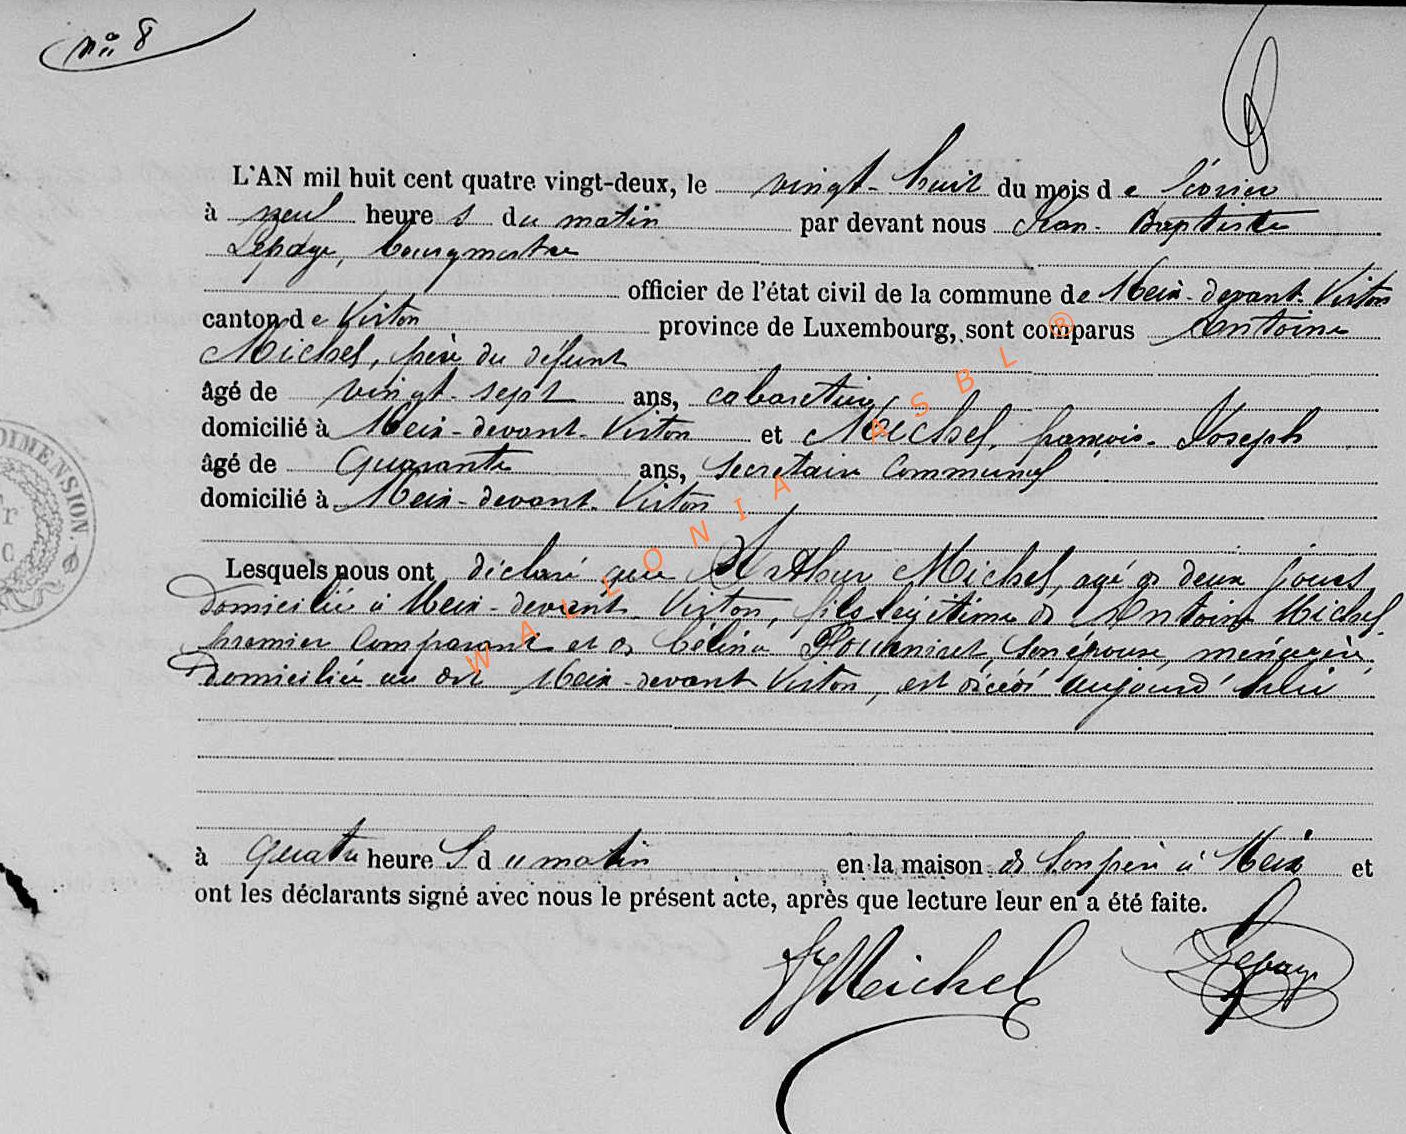 N° 8
L'AN mil huit cent quatre vingt-deux, le vingt-huit du mois de février
à neuf heures du matin par devant nous Jean-Baptiste
Lepage, bourgmestre
officier de l'état civil de la commune de Meix-devant-Virton
canton de Virton province de Luxembourg, sont comparus Antoine
Michel, père du défunt
âgé de vingt-sept ans, cabaretier
domicilié à Meix-devant-Virton et Michel, françois-Joseph
âgé de quarante ans, secrétaire communal
domicilié à Meix-devant-Virton
Lesquels nous ont déclaré que Arthur Michel, agé de deux jours
domicilié à Meix-devant-Virton, fils légitime de Antoine Michel
premier comparant et de Célina son épouse, ménagère,
domiciliée au dit Meix-devant Virton, est décédé aujourd'hui
à quatre heures du matin en la maison de son père à Meix et
ont les déclarants signé avec nous le présent acte, après que lecture leur en a été faite.
Michel Lepage
DIMENSION.
WALLONIA ASBL ®